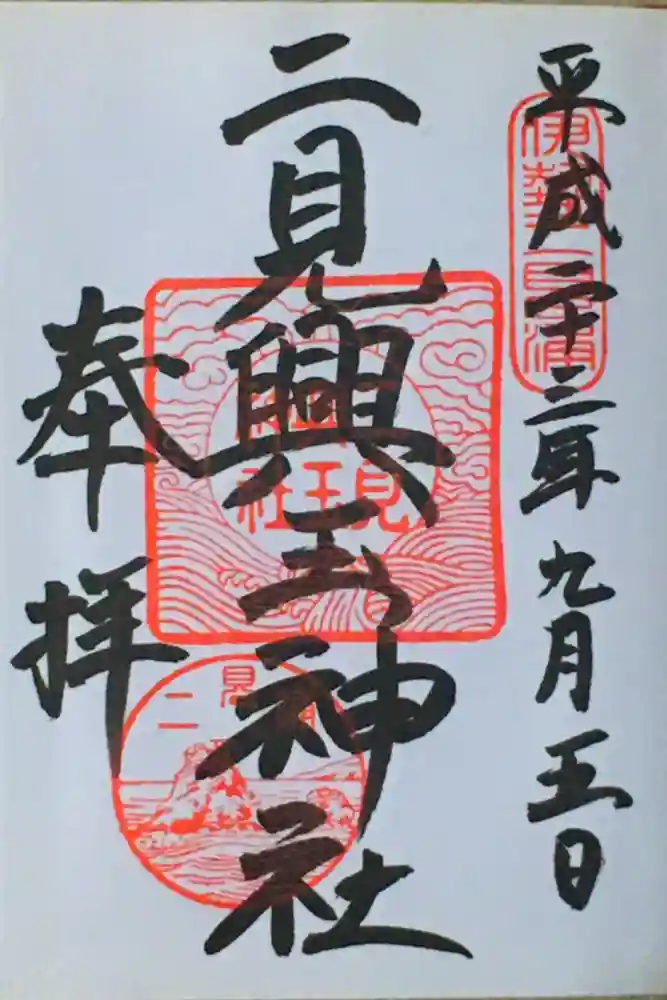 平成二十三年九月五日
伊勢二見浦
二見興玉神社
奉拝
二見浦